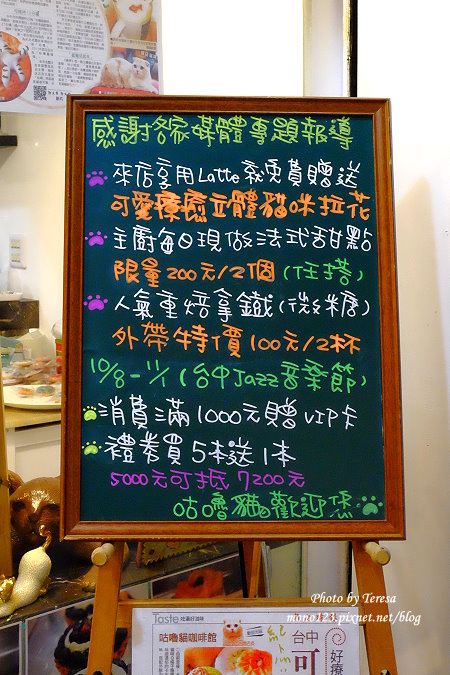 感謝各家媒體專題報導
來店享用Latte就免費贈送
可愛療癒立體貓咪拉花
主廚每日現做法式甜點
限量200元/2個(任搭)
人氣重焙拿鐵(微糖)
外帶特價100元/2杯
10/8-11/1(台中Jazz音樂節)
消費滿1000元贈VIP卡
禮券買5本送1本
5000元可抵7200元
咕嚕貓歡迎您
Photo by Teresa
mono123.pixnet.net/blog
Taste
咕嚕貓咖啡館
台中
可
好療